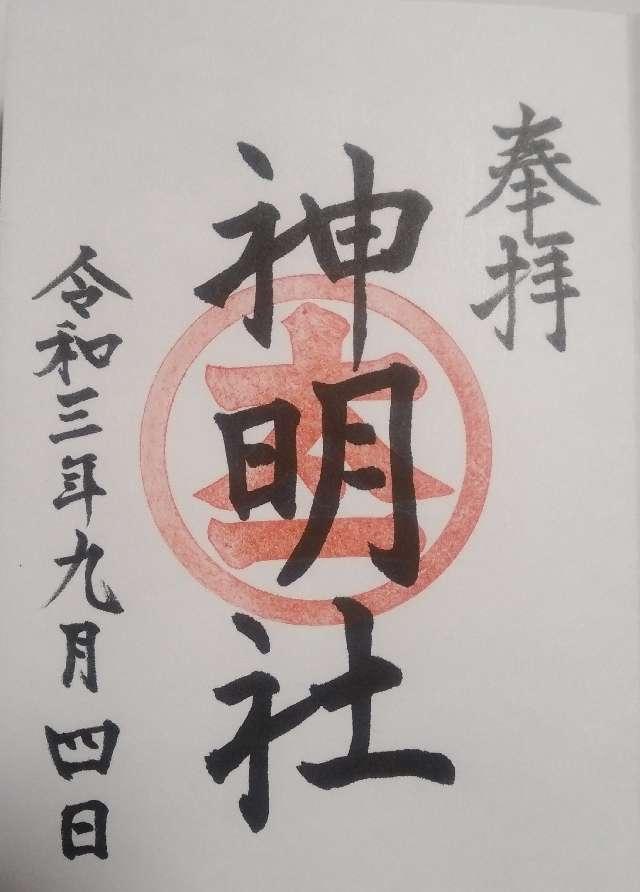 奉拝
神明社
令和三年九月四日